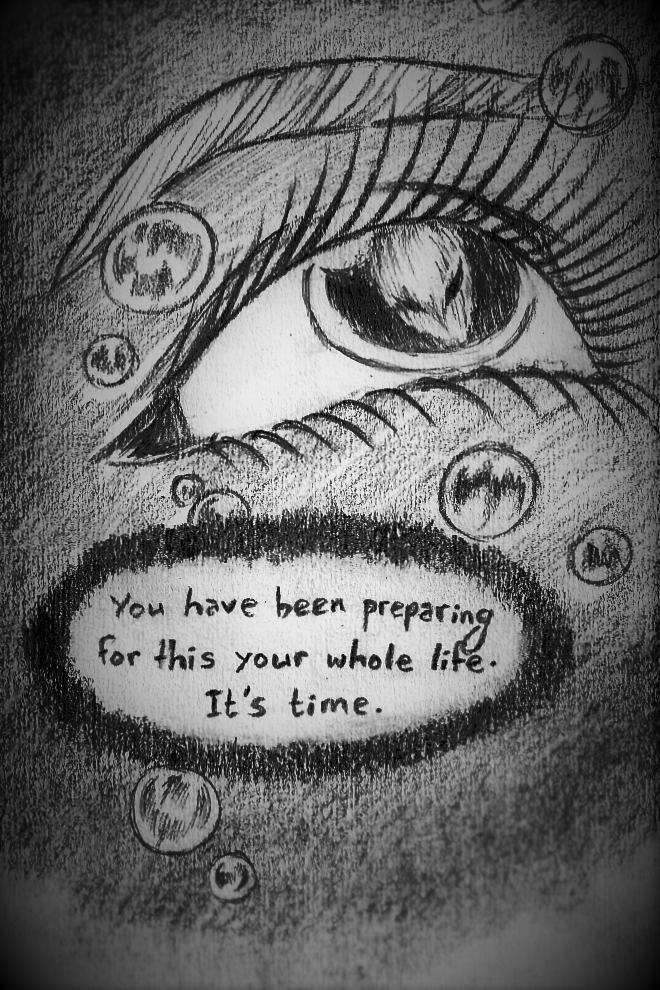 You have been preparing
for this your whole life.
It's time.